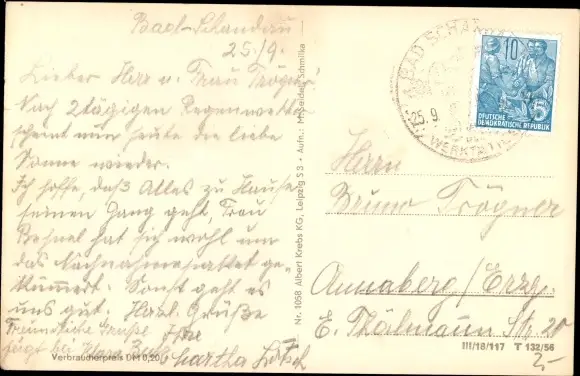 Bad-Schandau
25./9.
Lieber Herr u. Frau Trögner
Nach 2 tägigen Regenwetter
scheint nur heute die liebe
Sonne wieder.
Ich hoffe, daß Alles zu Hause
seinen Gang geht, Frau
hat sich wohl um
das Nachnahmepaket ge-
kümmert. Sonst geht es
uns gut. Herzl. Grüße
Freundliche Grüße Ihre
Martha
Verbraucherpreis DM 0,20
Nr. 1058 Albert Krebs KG, Leipzig S 3 • Aufn.: M. Seidel, Schmilka
BAD SCHAN
25. 9.
10
5
DEUTSCHE
DEMOKRATISCHE REPUBLIK
Herrn
Bruno Trögner
Annaberg / Erzg.
E. Thälmann Str. 20
III/18/117 T 132/56
2,-